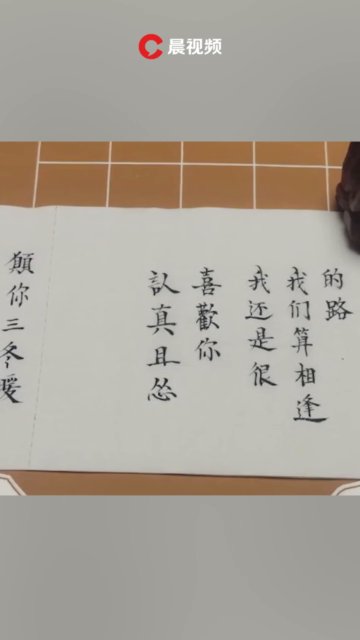 晨视频
的路
我们算相逢
我还是很
喜歡你
认真且怂
願你三冬暖